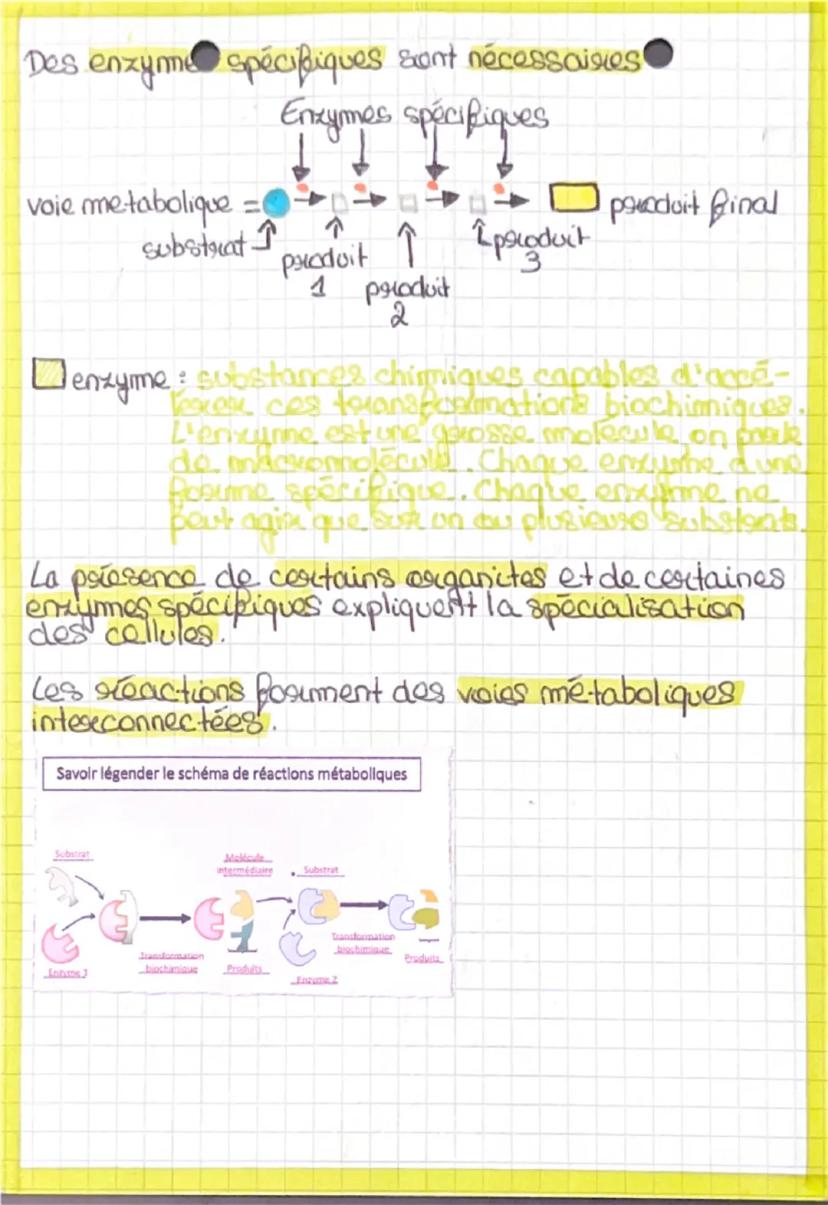 Des enzyme spécifiques sont nécessaires
Enzymes spécifiques
voie metabolique =
produit final
substrat
produit
1
produit
2
produit
3
enzyme : substances chimiques capables d'accé-
lerer ces transformations biochimiques.
L'enzyme est une grosse molécule on parle
de macromolécule. Chaque enzyme a une
forme spécifique. Chaque enzyme ne
peut agir que sur un ou plusieurs substrats.
La présence de certains organites et de certaines
enzymes spécifiques expliquent la spécialisation
des cellules.
Les réactions forment des voies métaboliques
interconnectées.
Savoir légender le schéma de réactions métaboliques
Substrat
Molécule
intermédiaire
Substrat
Enzyme 1
Transformation
biochimique
Produits
Enzyme 2
Transformation
biochimique
Produits